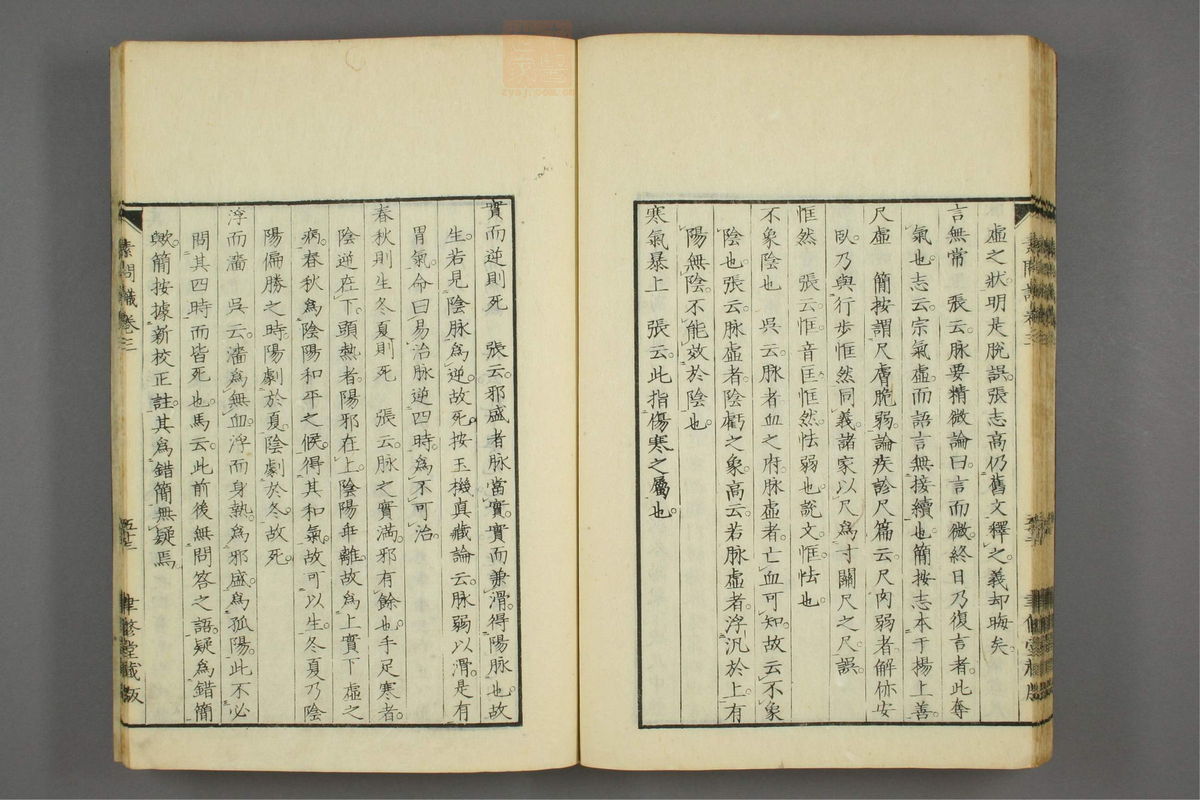 虛之狀明是脫誤張志高仍舊文釋之義却晦矣
言無常　張云脉要精微論曰言而微終日乃復言者此奪
氣也志云宗氣虛而語言無接續也簡按志本于楊上善
尺虛　簡按謂尺膚脆弱論疾診尺篇云尺肉弱者解㑊安
臥乃與行步恇然同義諸家以尺為寸關尺之尺誤
恇然　張云恇音匡恇然怯弱也說文恇怯也
不象陰也　吳云脉者血之府脉虛者亡血可知故云不象
陰也張云脉虛者陰虧之象高云若脉虛者浮汎於上有
陽無陰不能效於陰也
寒氣暴上　張云此指傷寒之屬也
實而逆則死　張云邪盛者脉當實實而兼滑得陽脉也故
生若見陰脉為逆故死按玉機真藏論云脉弱以滑是有
胃氣命曰易治脉逆四時為不可治
春秋則生冬夏則死　張云脉之實滿邪有餘也手足寒者
陰逆在下頭熱者陽邪在上陰陽乖離故為上實下虛之
病春秋為陰陽和平之候得其和氣故可以生冬夏乃陰
陽偏勝之時陽劇於夏陰劇於冬故死
浮而濇　吳云濇為無血浮而身熱為邪盛為孤陽此不必
問其四時而皆死也馬云此前後無問答之語疑為錯簡
歟簡按據新校正註其為錯簡無疑焉
素問識卷三
五十三
聿修堂藏版